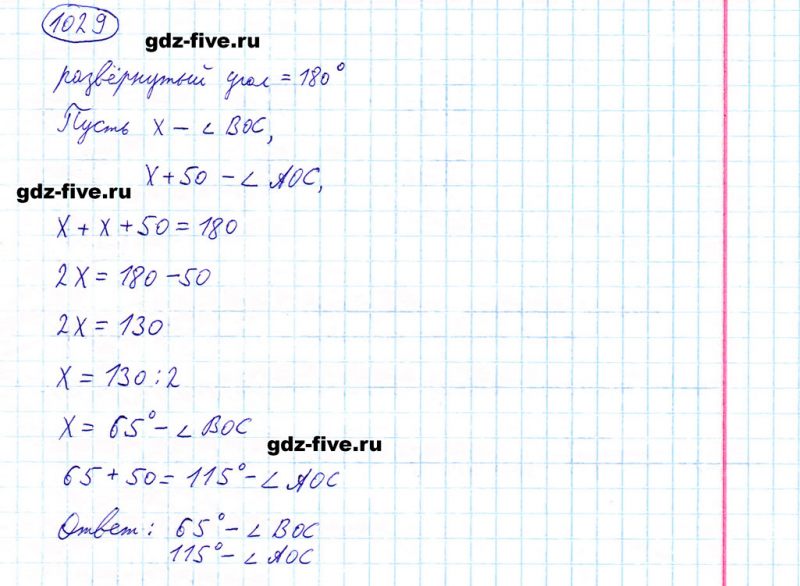 1029
gdz-five.ru
развёрнутый угол = 180°
Пусть x – ∠ BOC,
x + 50 – ∠ AOC,
gdz-five.ru
x + x + 50 = 180
2x = 180 – 50
2x = 130
x = 130 : 2
x = 65° – ∠ BOC
gdz-five.ru
65 + 50 = 115° – ∠ AOC
Ответ: 65° – ∠ BOC
115° – ∠ AOC